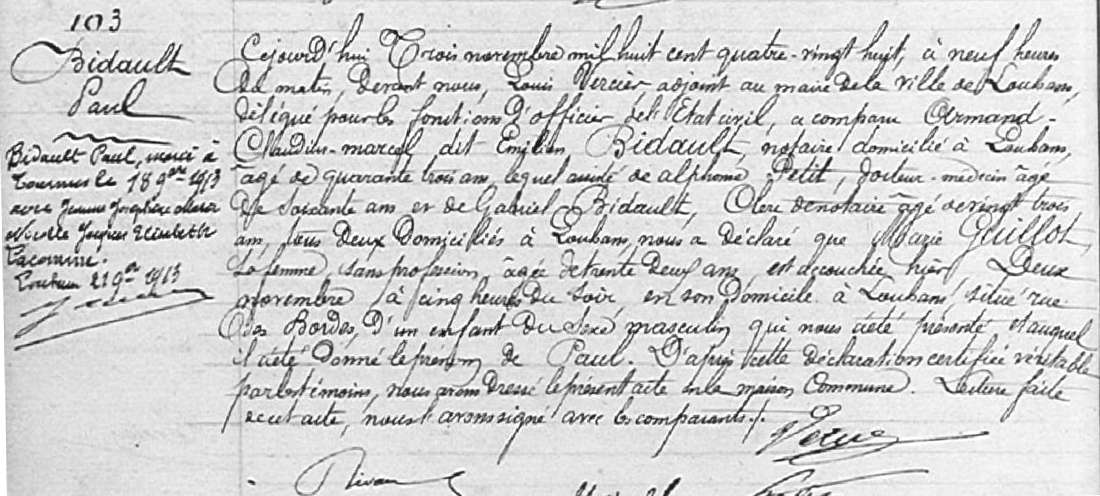 103
Bidault
Paul
Bidault Paul, marié à
Tournus le 18 9bre 1913
avec Jeanne Josephine Marie
Jacques Elisabeth
Lacomme.
Louhans 21 9bre 1913
Cejourd'hui Trois novembre mil huit cent quatre-vingt huit, à neuf heures
du matin, devant nous, Louis Vercier adjoint au maire de la ville de Louhans,
délégué pour les fonctions d'officier de l'Etat civil, a comparu Armand-
Claudius-marcel dit Emilien Bidault, notaire domicilié à Louhans,
âgé de quarante trois ans, lequel assisté de alphonse Petit, docteur-médecin âgé
de soixante ans et de Gabriel Bidault, Clerc de notaire âgé de vingt trois
ans, tous deux domiciliés à Louhans, nous a déclaré que Marie Guillot,
sa femme, sans profession, âgée de trente deux ans, est accouchée hier Deux
novembre à cinq heures du soir, en son domicile à Louhans, situé rue
des Bordes, d'un enfant du sexe masculin qui nous a été présenté, et auquel
il a été donné le prénom de Paul. D'après cette déclaration certifiée véritable
par les témoins, nous avons dressé le présent acte en la maison Commune. Lecture faite
de cet acte, nous l'avons signé avec les comparants./.